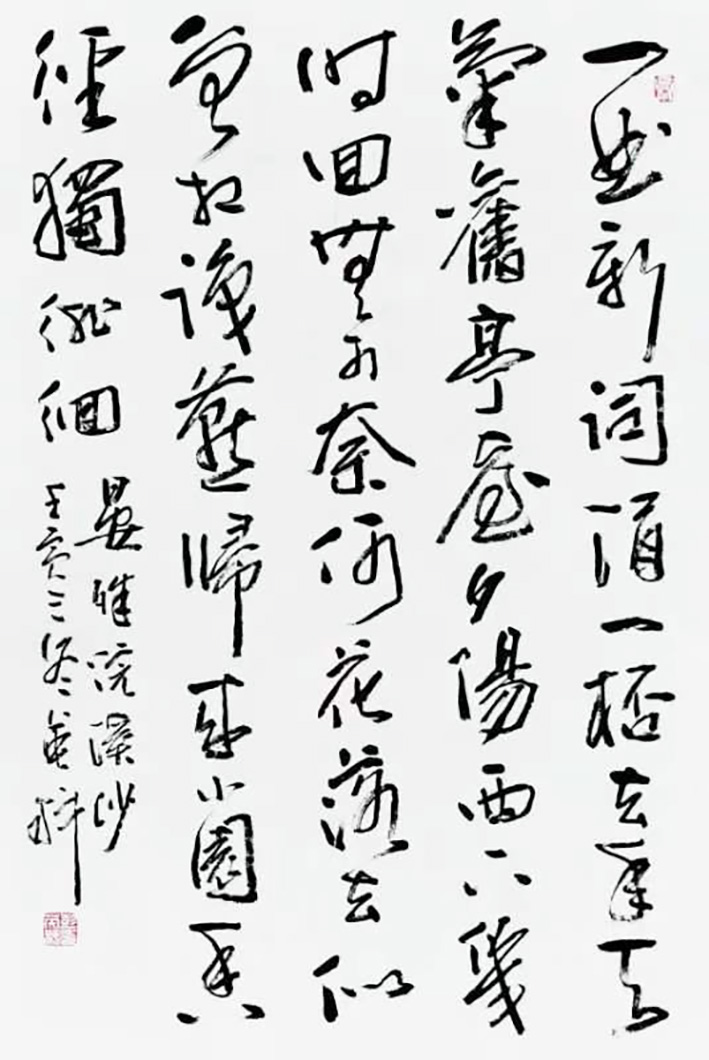 一曲新詞酒一桮去年天
氣舊亭臺夕陽西下幾
時回無可奈何花落去似
曾相識燕歸來小園香
徑獨徘徊
晏殊浣溪沙
壬寅之冬